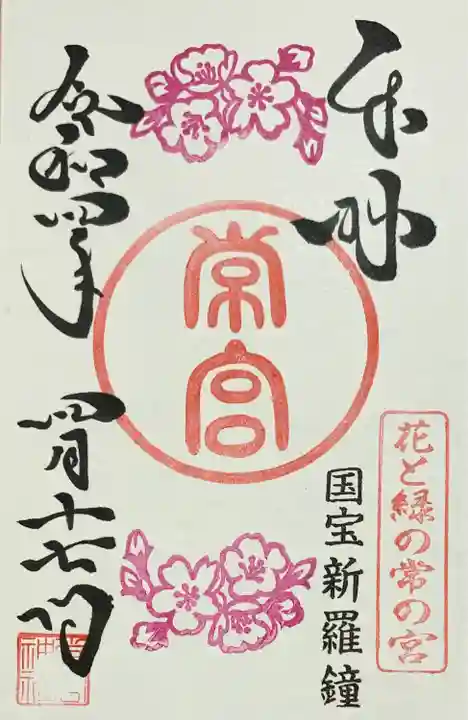 奉拝
花と緑の常の宮
国宝新羅鐘
常宮
令和四年
四月十七日
常宮神社